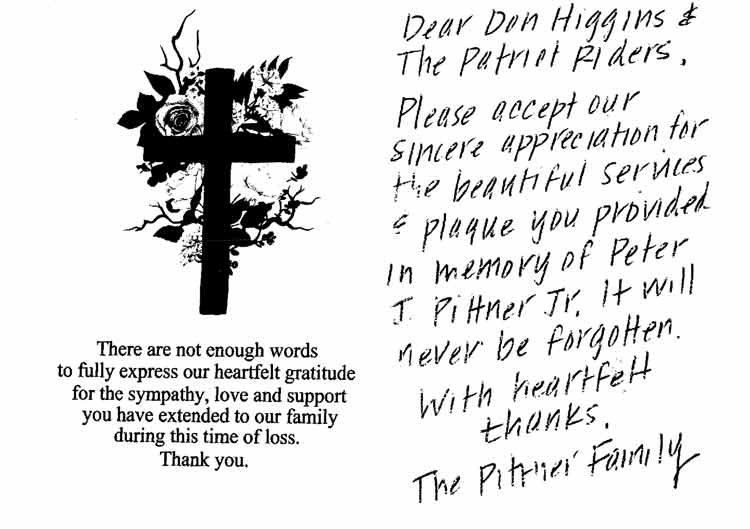 There are not enough words
to fully express our heartfelt gratitude
for the sympathy, love and support
you have extended to our family
during this time of loss.
Thank you.
Dear Don Higgins &
The Patriot Riders,
Please accept our
sincere appreciation for
the beautiful services
& plaque you provided
in memory of Peter
J. Pittner Jr. It will
never be forgotten.
With heartfelt
thanks.
The Pittner Family